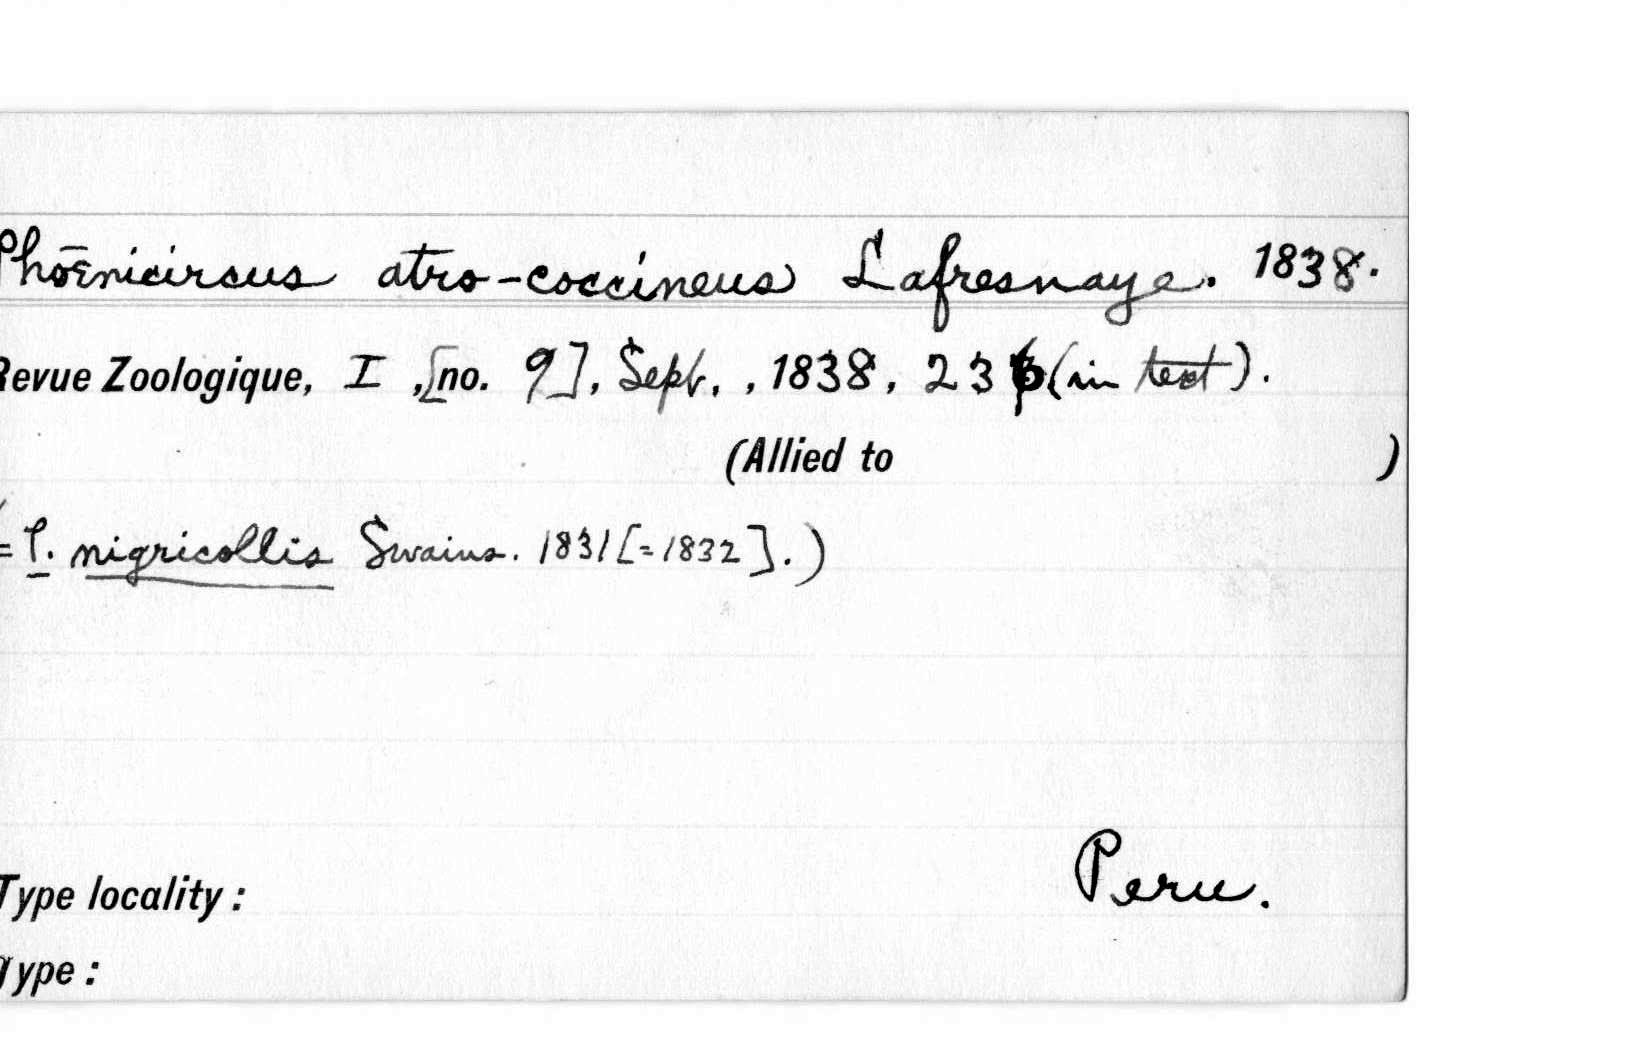 Phœnicircus atro-coccineus Lafresnaye. 1838.
Revue Zoologique, I ,[no. 9], Sept. , 1838, 236 (in text).
(Allied to )
(= P. nigricollis Swains. 1831 [=1832].)
Peru.
Type locality :
Type :